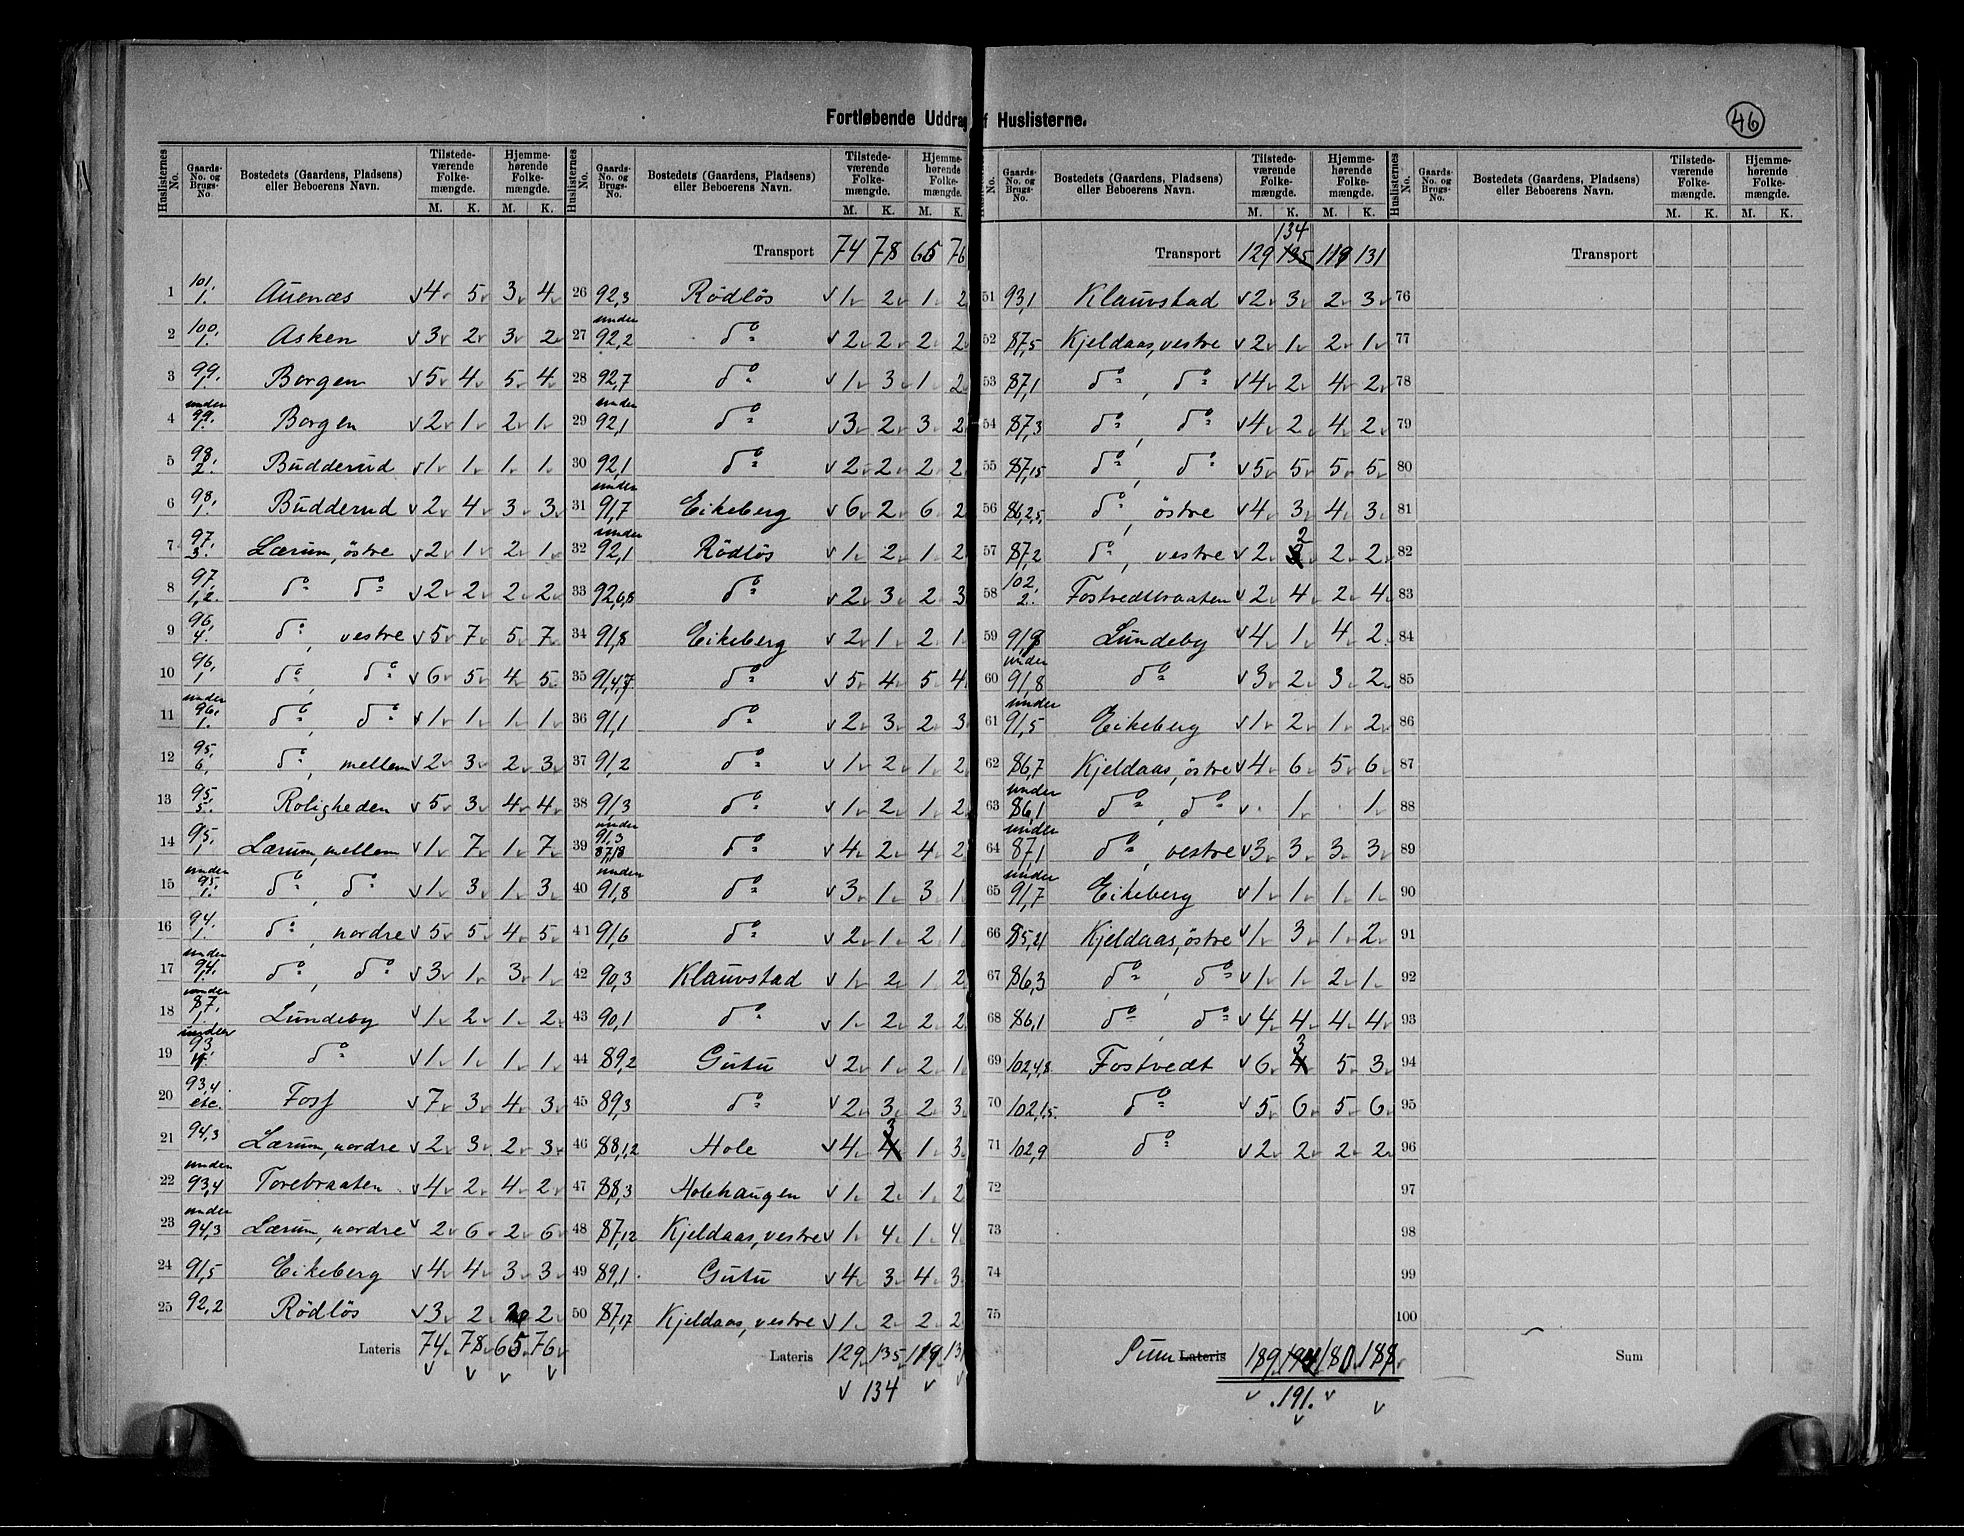 Fortløbende Uddrag af Huslisterne.
46
Huslisternes No. | Gaards-No. og Brugs-No. | Bostedets (Gaardens, Pladsens) eller Beboerens Navn. | Tilstedeværende Folkemængde. M. K. | Hjemmehørende Folkemængde. M. K.
1 101, 1. Auenæs 4 5 3 4
2 100, 1. Asken 3 2 3 2
3 99, 1 Borgen 5 4 5 4
4 under 99, 1. Borgen 2 1 2 1
5 98, 2. Budderud 1 1 1 1
6 98, 1 Budderud 2 4 3 3
7 97, 3. Lærum, östre 2 1 2 1
8 97, 1,2. do do 2 2 2 2
9 96, 4. do, vestre 5 7 5 7
10 96, 1 do, do 6 5 4 5
11 under 96, 1. do, do 1 1 1 1
12 95, 6, do, mellem 2 3 2 3
13 95, 5. Roligheden 5 3 4 4
14 95, 1 Lærum, mellem 1 7 1 7
15 under 95, 1. do, do 1 3 1 3
16 94, 1. do, nordre 5 5 4 5
17 under 94, 1. do, do 3 1 3 1
18 under 87, 1. Lundeby 1 2 1 2
19 under 93 do 1 1 1 1
20 93,4 etc. Foss 7 3 4 3
21 94,3 Lærum, nordre 2 3 2 3
22 under 93,4 Torebraaten 4 2 4 2
23 under 94,3 Lærum, nordre 2 6 2 6
24 91,5 Eikeberg 4 4 3 3
25 92,2 Rödlös 3 2 2 2
Lateris 74 78 65 76
Transport 74 78 65 76
26 92,3 Rödlös 1 2 1 2
27 under 92,2 do 2 2 2 2
28 92,7 do 1 3 1 2
29 under 92,1 do 3 2 3 2
30 92,1 do 2 2 2 2
31 under 91,7 Eikeberg 6 2 6 2
32 under 92,1 Rödlös 1 2 1 2
33 92,6,8 do 2 3 2 3
34 91,8 Eikeberg 2 1 2 1
35 91,4,7. do 5 4 5 4
36 91,1 do 2 3 2 3
37 91,2 do 1 2 1 2
38 91,3 do 1 2 1 2
39 under 91,3 87,18 do 4 2 4 2
40 under 91,8 do 3 1 3 1
41 91,6 do 2 1 2 1
42 90,3 Klauvstad 1 2 1 2
43 90,1 do 1 2 2 2
44 89,2 Gutu 2 1 2 1
45 89,3 do 2 3 2 3
46 88,1,2 Hole 4 3 1 3
47 88,3 Holehaugen 1 2 1 2
48 87,12 Kjeldaas, vestre 1 4 1 4
49 89,1. Gutu 4 3 4 3
50 87,17 Kjeldaas, vestre 1 2 2 2
Lateris 129 135 119 131
134
Transport 129 134 135 119 131
51 93,1 Klauvstad 2 3 2 3
52 87,5 Kjeldaas, vestre 2 1 2 1
53 87,1 do, do 4 2 4 2
54 87,3 do, do 4 2 4 2
55 87,15 do, do 5 5 5 5
56 86,2,5, do, östre 4 3 4 3
57 87,2 do, vestre 2 2 2 2
58 102, 2. Fostvedtbraaten 2 4 2 4
59 91,9 Lundeby 4 1 4 2
60 under 91,8 do 3 2 3 2
61 under 91,5 Eikeberg 1 2 1 2
62 86,7 Kjeldaas, östre 4 6 5 6
63 under 86,1 do, do . 1 . 1
64 under 87,1 do, vestre 3 3 3 3
65 under 91,7 Eikeberg 1 1 1 1
66 85,21 Kjeldaas, östre 1 3 1 2
67 86,3 do, do 1 1 2 1
68 86,1 do, do 4 4 4 4
69 102,4,8 Fostvedt 6 3 5 3
70 102,1,5. do 5 6 5 6
71 102,9 do 2 2 2 2
72
73
74
75
Sum Lateris 189 194 180 188
.191.
Transport
76
77
78
79
80
81
82
83
84
85
86
87
88
89
90
91
92
93
94
95
96
97
98
99
100
Sum